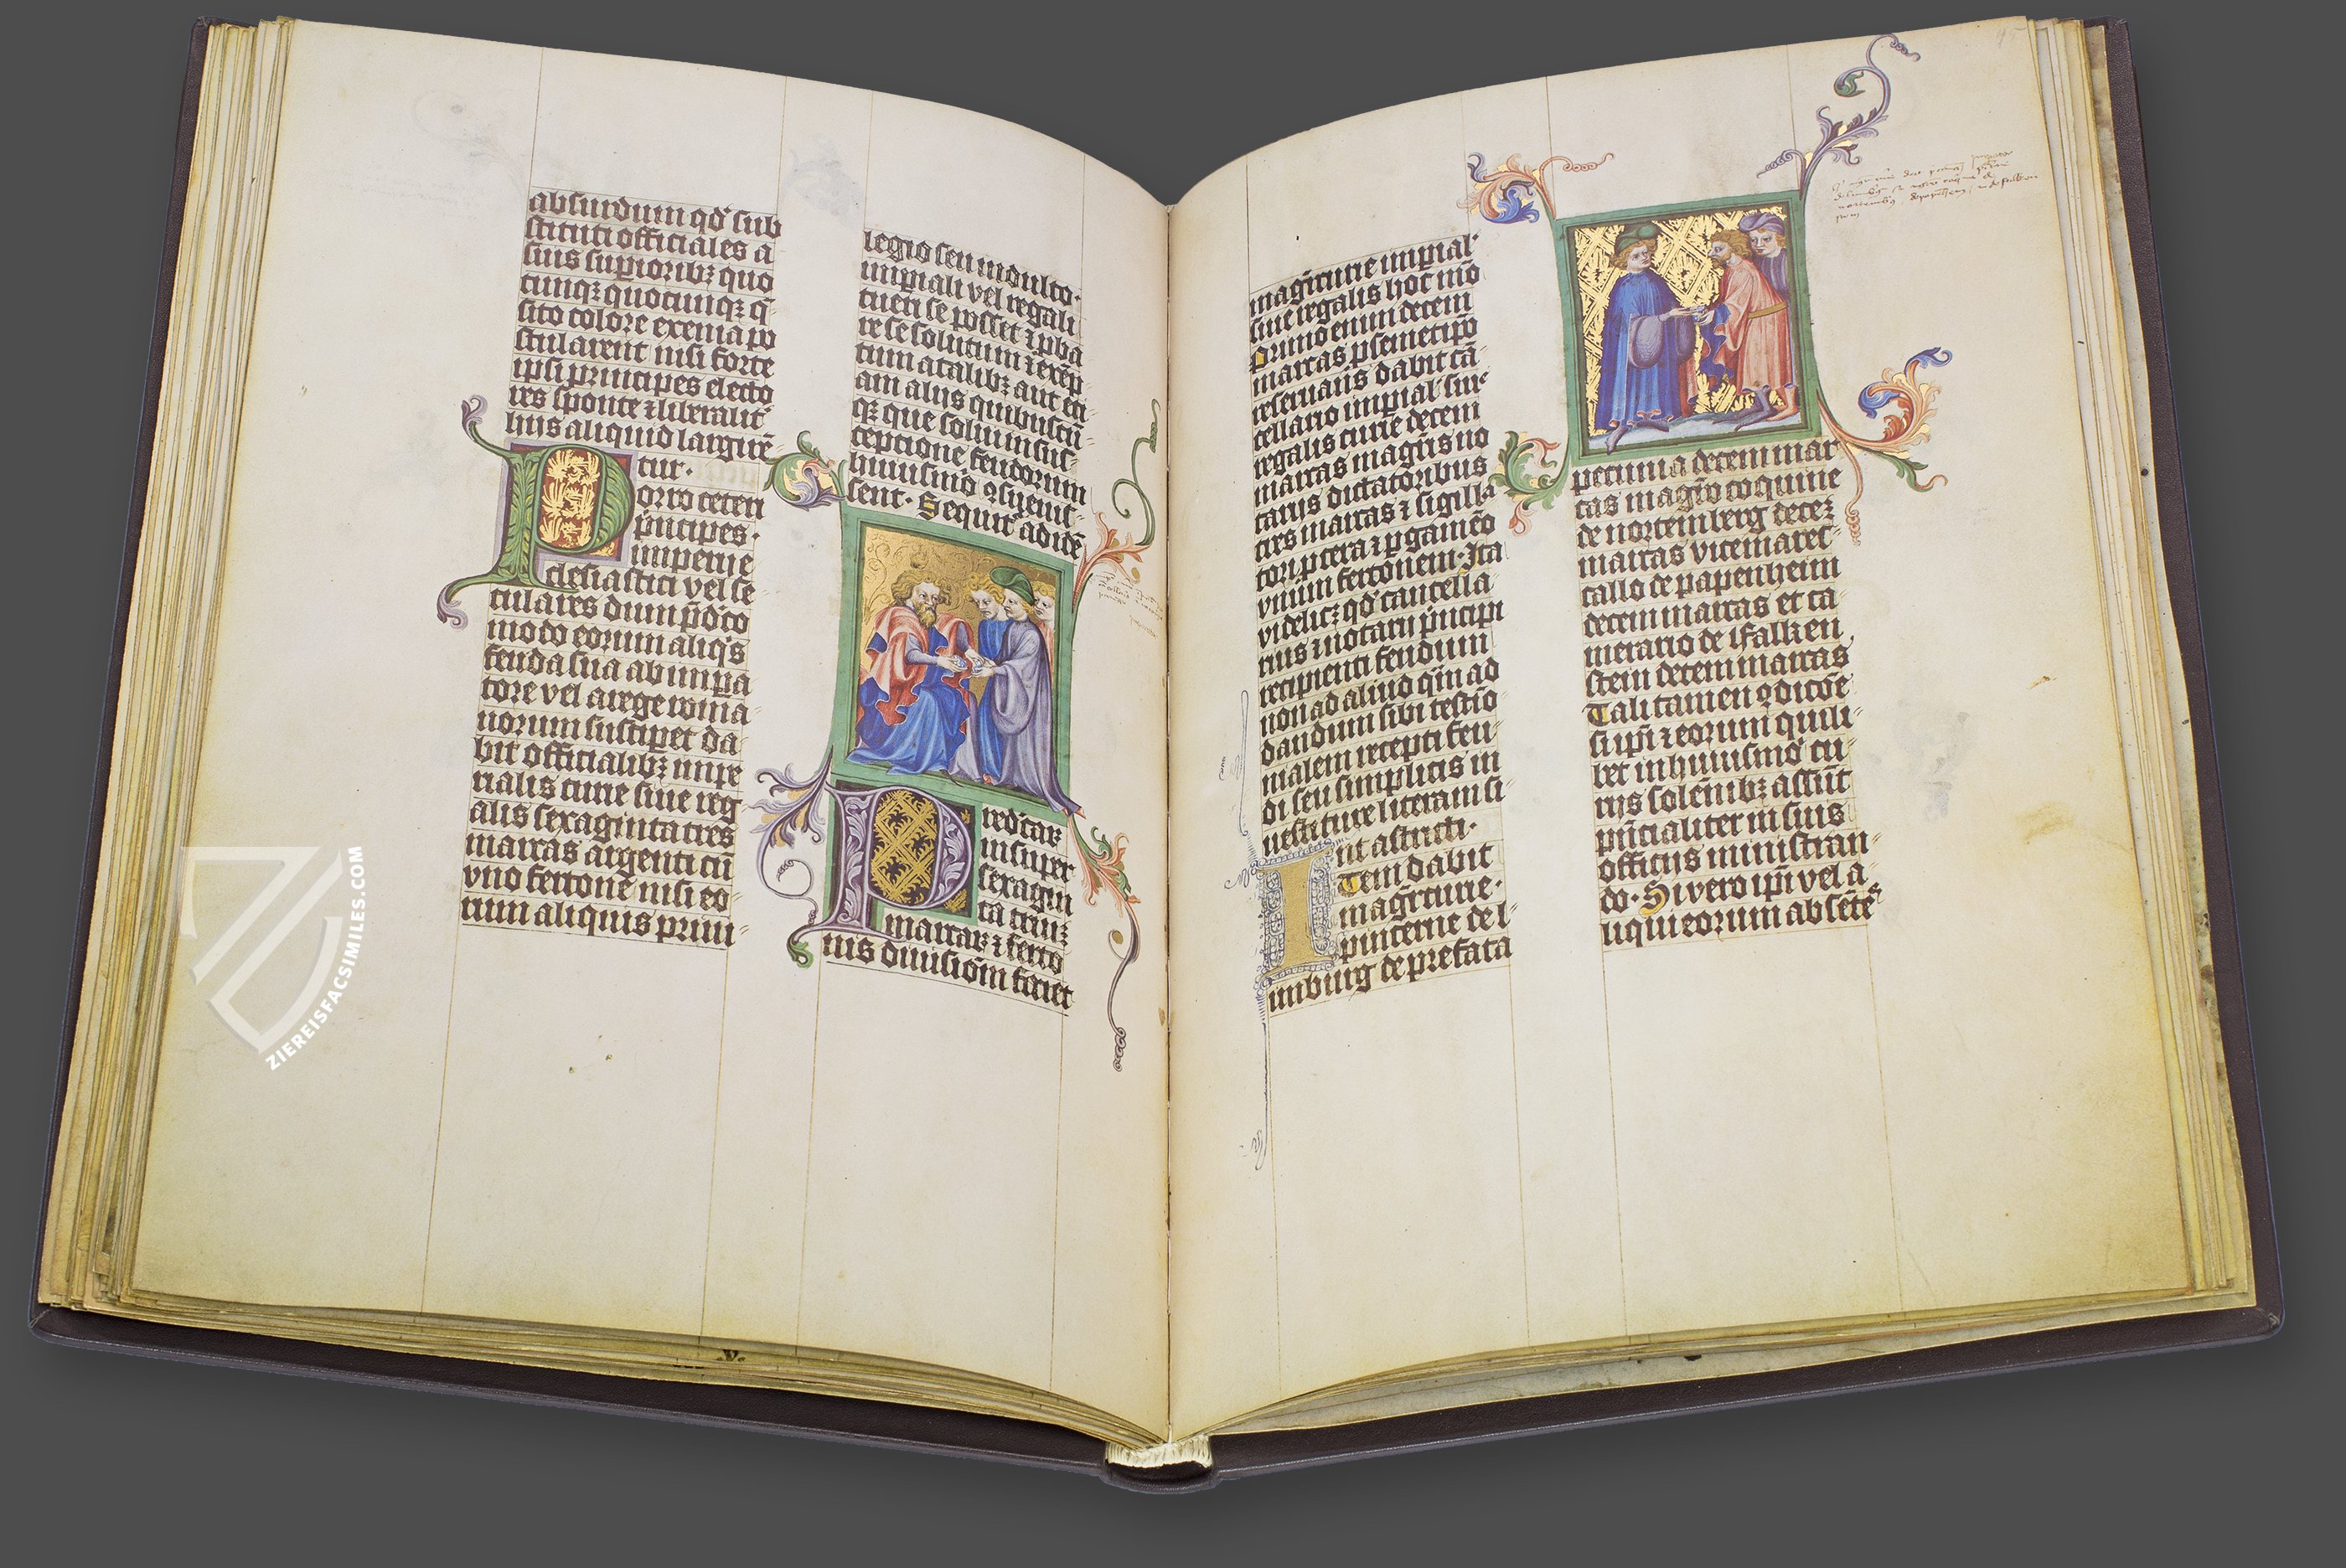 absurdum qd' sub
stituti officiales a
suis supioribz quo
cunqz quocunqz q̄
sito colore exenia po
stularent nisi forte
ipsi principes electo
res sponte ⁊ liberalit'
hiis aliquid largire̅
tur·
Porro ceteri
p̄ncipes·
imperii e
cclesiastici vel se
culares dum p̄d'co
modo eorum aliq's
feuda sua ab impa
tore vel a rege roma
norum suscipet da
bit officialibz impe
rialis curie siue reg
alis sexaginta tres
marcas argenti cu̅
vno fertone nisi eo
rum aliquis priui
legio seu indulto·
impiali vel regali
tueri se posset ⁊ pba
re se solutum ⁊ exe̅p
tum a talibz aut eci
am aliis quibuscu̅
qz que solui in sus
cepcione feudorum
huiusmo ɔsueuis
sent· Sequit' ad ide̅
Pred'car
insuper
sexagin
ta triu̅
marcar ⁊ ferto
nis diuisio̅m faciet
magr curie impial'
siue regalis hoc mo̅
Primo enim decem
marcas p semetip̅o
reseruans dabit ca̅
cellario impial' siu'
regalis curie decem
marcas magr̅is no
tariis dictatoribus
tres marcas ⁊ sigilla
tori p cera ⁊ pgameo̅
vnum fertonem· Ita
videlicz qd' cancella
rius ⁊ notarii p̄ncipi
recipienti feudum
non ad aliud q̄m ad
dandum sibi testio̅
nialem recepti feu
di seu simplicis in
uestiture literam si
nt astricti·
Item dabit
magr curie·
pincerne de l
imburg de prefata
pecunia decem mar
cas magr̅o coquine
de nortemberg decez
marcas vicemares
callo de papenheim
decem marcas et ca
merario de Falken
stein decem marcas
Tali tamen ɔdicoe̅
si ip̅i ⁊ eorum quili
bet in huiusmo cu
riis solenibz assu̅t
p̄ncialiter in suis
officiis ministran
do· Si vero ip̅i vel a
liqui eorum ab se̅te̅
95
ZIEREISFACSIMILES.COM